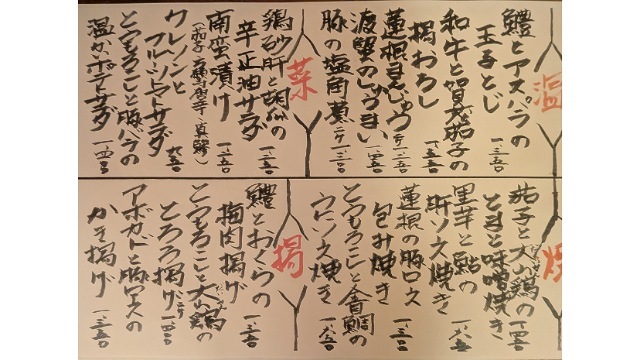 温
鱧とアスパラの
玉子とじ
一、三五〇
和牛と賀茂茄子の
揚おろし
一、五五〇
蓮根まんじゅう
渡蟹のしゅうまい
一、一五〇
豚の塩角煮
一、三〇〇
菜
鶏砂肝と胡瓜の
辛正油サラダ
一、一五〇
南蛮漬け
一、一五〇
クレソンと
フルーツトマトサラダ
九五〇
とうもろこしと豚バラの
温かポテトサダ
一、一四〇〇
焼
茄子と大山鶏の
ともと味噌焼き
一、一四五〇
里芋と鮎の
肝ソース焼き
一、一六五〇
蓮根の豚ロース
包み焼き
一、三五〇
とうもろこしと金目鯛
ウニソース焼き
一、六五〇
揚
鱧とおくらの
梅肉揚げ
一、三五〇
とうもろこしと大山鶏の
とろろ揚げ
一、一四〇〇
アボガドと豚ロースの
かき揚げ
一、三五〇